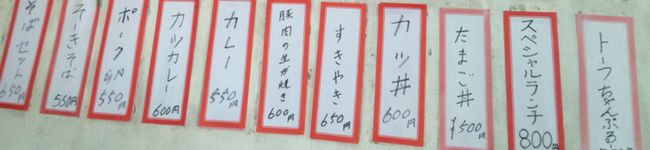 トーフちゃんぷる
スペシャルランチ
800円
たまご丼
¥500
カツ丼
600円
すきやき
650円
豚肉の生が焼き
600円
カレー
550円
カツカレー
600円
ポーク卵
550円
そーきそば
550円
そばセット
650円